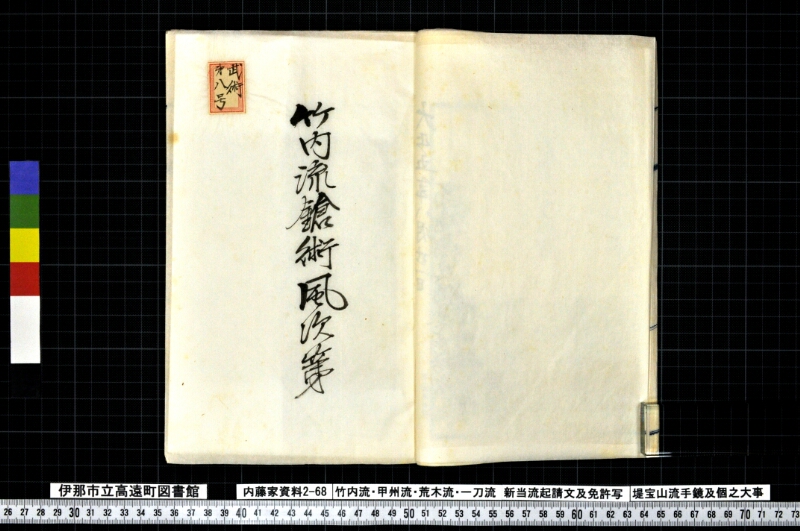 武術
第八号
竹内流鎗術風次第
伊那市立高遠町図書館
内藤家資料2-68
竹内流・甲州流・荒木流・一刀流 新当流起請文及免許写
堤宝山流手鏡及個之大事
26 27 28 29 30 31 32 33 34 35 36 37 38 39 40 41 42 43 44 45 46 47 48 49 50 51 52 53 54 55 56 57 58 59 60 61 62 63 64 65 66 67 68 69 70 71 72 73